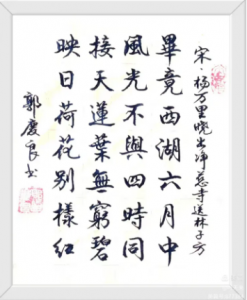 宋·杨万里晓出净慈寺送林子方
畢竟西湖六月中
風光不與四時同
接天蓮葉無窮碧
映日荷花别樣紅
郭慶良书